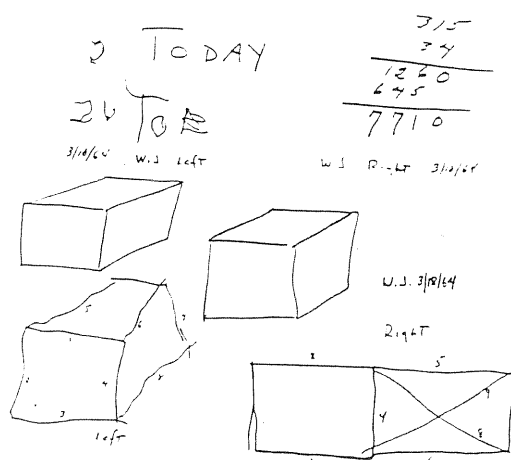 TODAY
315
34
1260
645
7710
TOE
3/18/64 W.J. Left
W.J. Right 3/18/64
W.J. 3/18/64
Right
5
6
7
1
2
4
8
3
Left
8
5
4
9
8